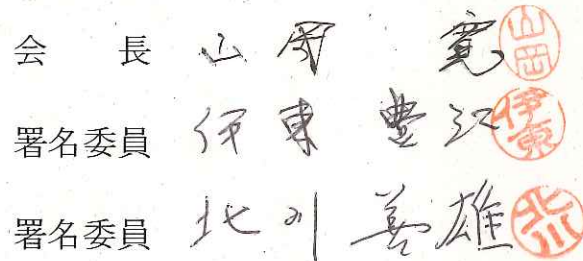 会長 山岡 寛 山岡
署名委員 伊東 豊江 伊東
署名委員 北川 善雄 北川